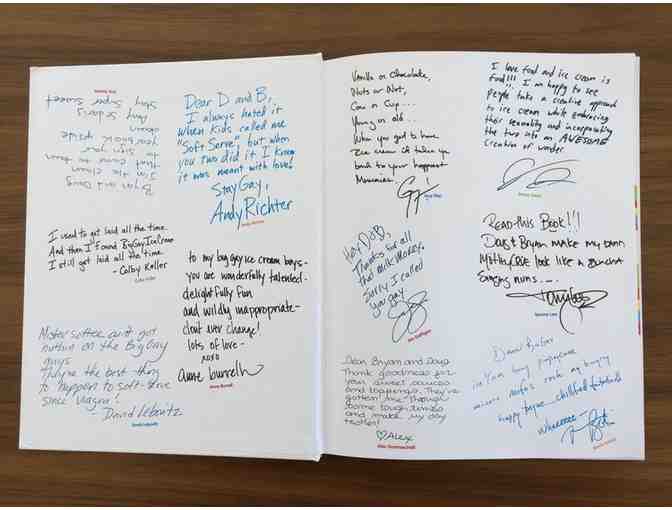 Bryan and Doug
I'm the clown
that come to town
bring your
book pride
down
Amy Sedaris
Stay Super Sweet
Dear D and B,
I always hated it
when kids called me
"Soft Serve", but when
you two did it I know
it was meant with love!
Stay Gay,
Andy Richter
I used to get laid all the time.
And then I found Big Gay Ice Cream
I still get laid all the time.
- Colby Keller
to my big gay ice cream boys -
you are wonderfully talented -
delightfully fun
and wildly inappropriate -
don't ever change!
lots of love -
xoxo
anne burrell
Mister softee ain't got
nuthin on the Big Gay
guys
They're the best thing
to happen to soft-serve
since viagra!
David Lebovitz
Vanilla or Chocolate,
Nuts or Not,
Cone or Cup...
Young or old...
When you got to have
Ice cream it takes you
back to your happiest
Memories.
I love food and ice cream is
food!!! I'm happy to see
people take a creative approach
to ice cream while embracing
their sexuality and incorporating
the two into an AWESOME
creation of wonder
Hey D & B,
Thanks for all
the milk money.
Sorry I called
you gay.
Read this Book!!!
Doug & Bryan make my damn
look like a
Singing nuns...
Dear Bryan and Doug
Thank goodness for
your sweet sauces
and toppings. They've
gotten me through
some tough times
and make my day
tastier!
♡ Alex
happy
Wheeeeee -